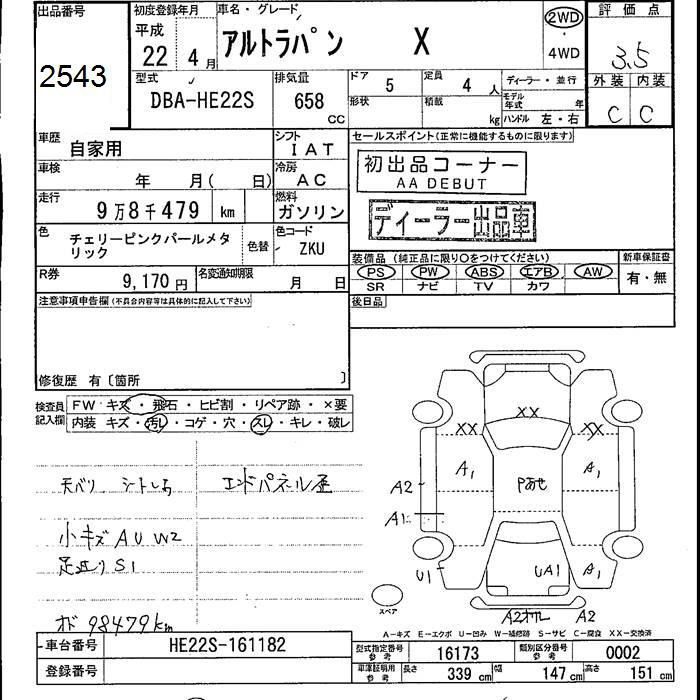 出品番号
2543
初度登録年月
平成
22 4月
車名・グレード
アルトラパン X
2WD
・
4WD
評価点
3.5
外装 内装
C C
型式
DBA-HE22S
排気量
658
CC
ドア
5
定員
4 人
形状
積載
kg
ディーラー・並行
モデル年式 年
ハンドル 左・右
車歴
自家用
シフト
IAT
車検
年 月( 日)
冷房
AC
走行
9万8千479 km
燃料
ガソリン
色
チェリーピンクパールメタ
リック
色替
色コード
ZKU
R券
9,170円
名変通知期限
月 日
セールスポイント(正常に機能するものに限ります)
初出品コーナー
AA DEBUT
ディーラー出品車
装備品 (純正品に限り○をつけてください)
新車保証書
PS PW ABS エアB AW
SR ナビ TV カワ
有・無
後日品
注意事項申告欄(不具合内容等は具体的に記入して下さい)
修復歴 有〔箇所 〕
検査員
記入欄
FW キズ・飛石・ヒビ割・リペア跡・×要
内装 キズ・汚レ・コゲ・穴・スレ・キレ・破レ
天バリ シート
エンドパネル
小キズ AU W2
足廻り S1
98479km
XX
XX XX
A1 A1
Pあせ
A2
A1
U1
UA1 A1
A2 A2
スペア
A-キズ E-エクボ U-凹み W-補修跡 S-サビ C-腐食 XX-交換済
車台番号
HE22S-161182
登録番号
型式指定番号
参考
16173
類別区分番号
参考
0002
車庫証明用
参考
長さ 339 cm 幅 147 cm 高さ 151 cm